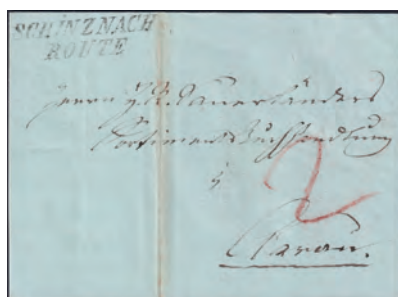 SCHINZNACH
ROUTE
Herrn H. R. Sauerländers
Sortiments Buchhandlung
in
2
Aarau.